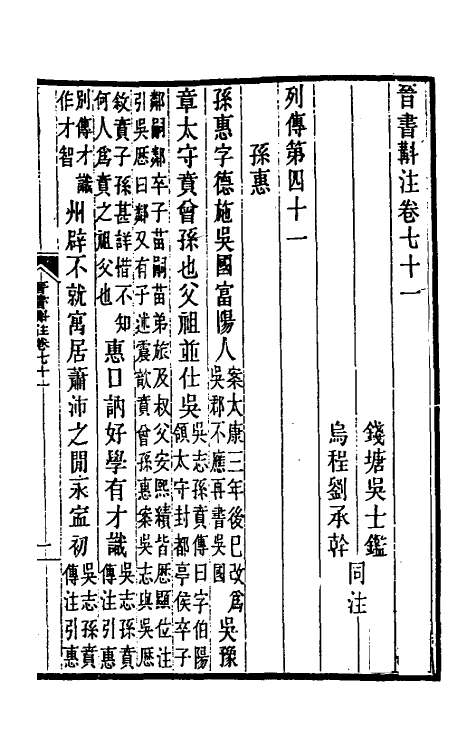 晉書斠注卷七十一
錢塘吳士鑑
烏程劉承幹
同注
列傳第四十一
孫惠
孫惠字德施吳國富陽人案太康三年後已改爲吳郡不應再書吳國吳豫
章太守賁曾孫也父祖並仕吳吳志孫賁傳曰字伯陽領太守封都亭侯卒子
鄰嗣鄰卒子苗嗣苗弟旅及叔父安熙績皆歷顯位注引吳歷曰鄰又有子述震歆賁曾孫惠案吳志與吳歷
敘賁子孫甚詳惜不知何人爲賁之祖父也惠口訥好學有才識吳志孫賁傳注引惠
別傳才識作才智州辟不就寓居蕭沛之閒永寍初吳志孫賁傳注引惠
晉書斠注卷七十一
一